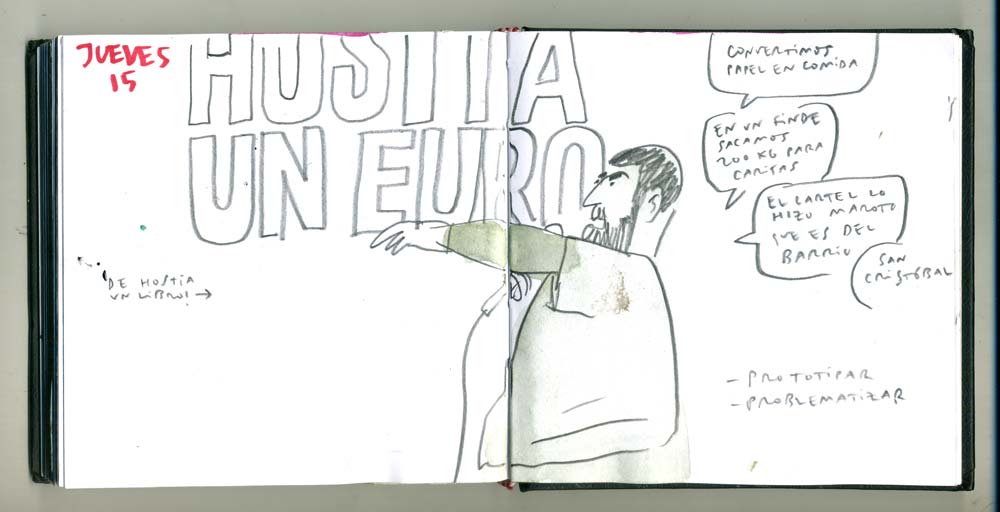 JUEVES
15
HOSTIA
UN EURO
DE HOSTIA
UN LIBRO! →
CONVERTIMOS
PAPEL EN COMIDA
EN UN FINDE
SACAMOS
200 KG PARA
CARITAS
EL CARTEL LO
HIZO MAROTO
QUE ES DEL
BARRIO
SAN
CRISTÓBAL
- PROTOTIPAR
- PROBLEMATIZAR